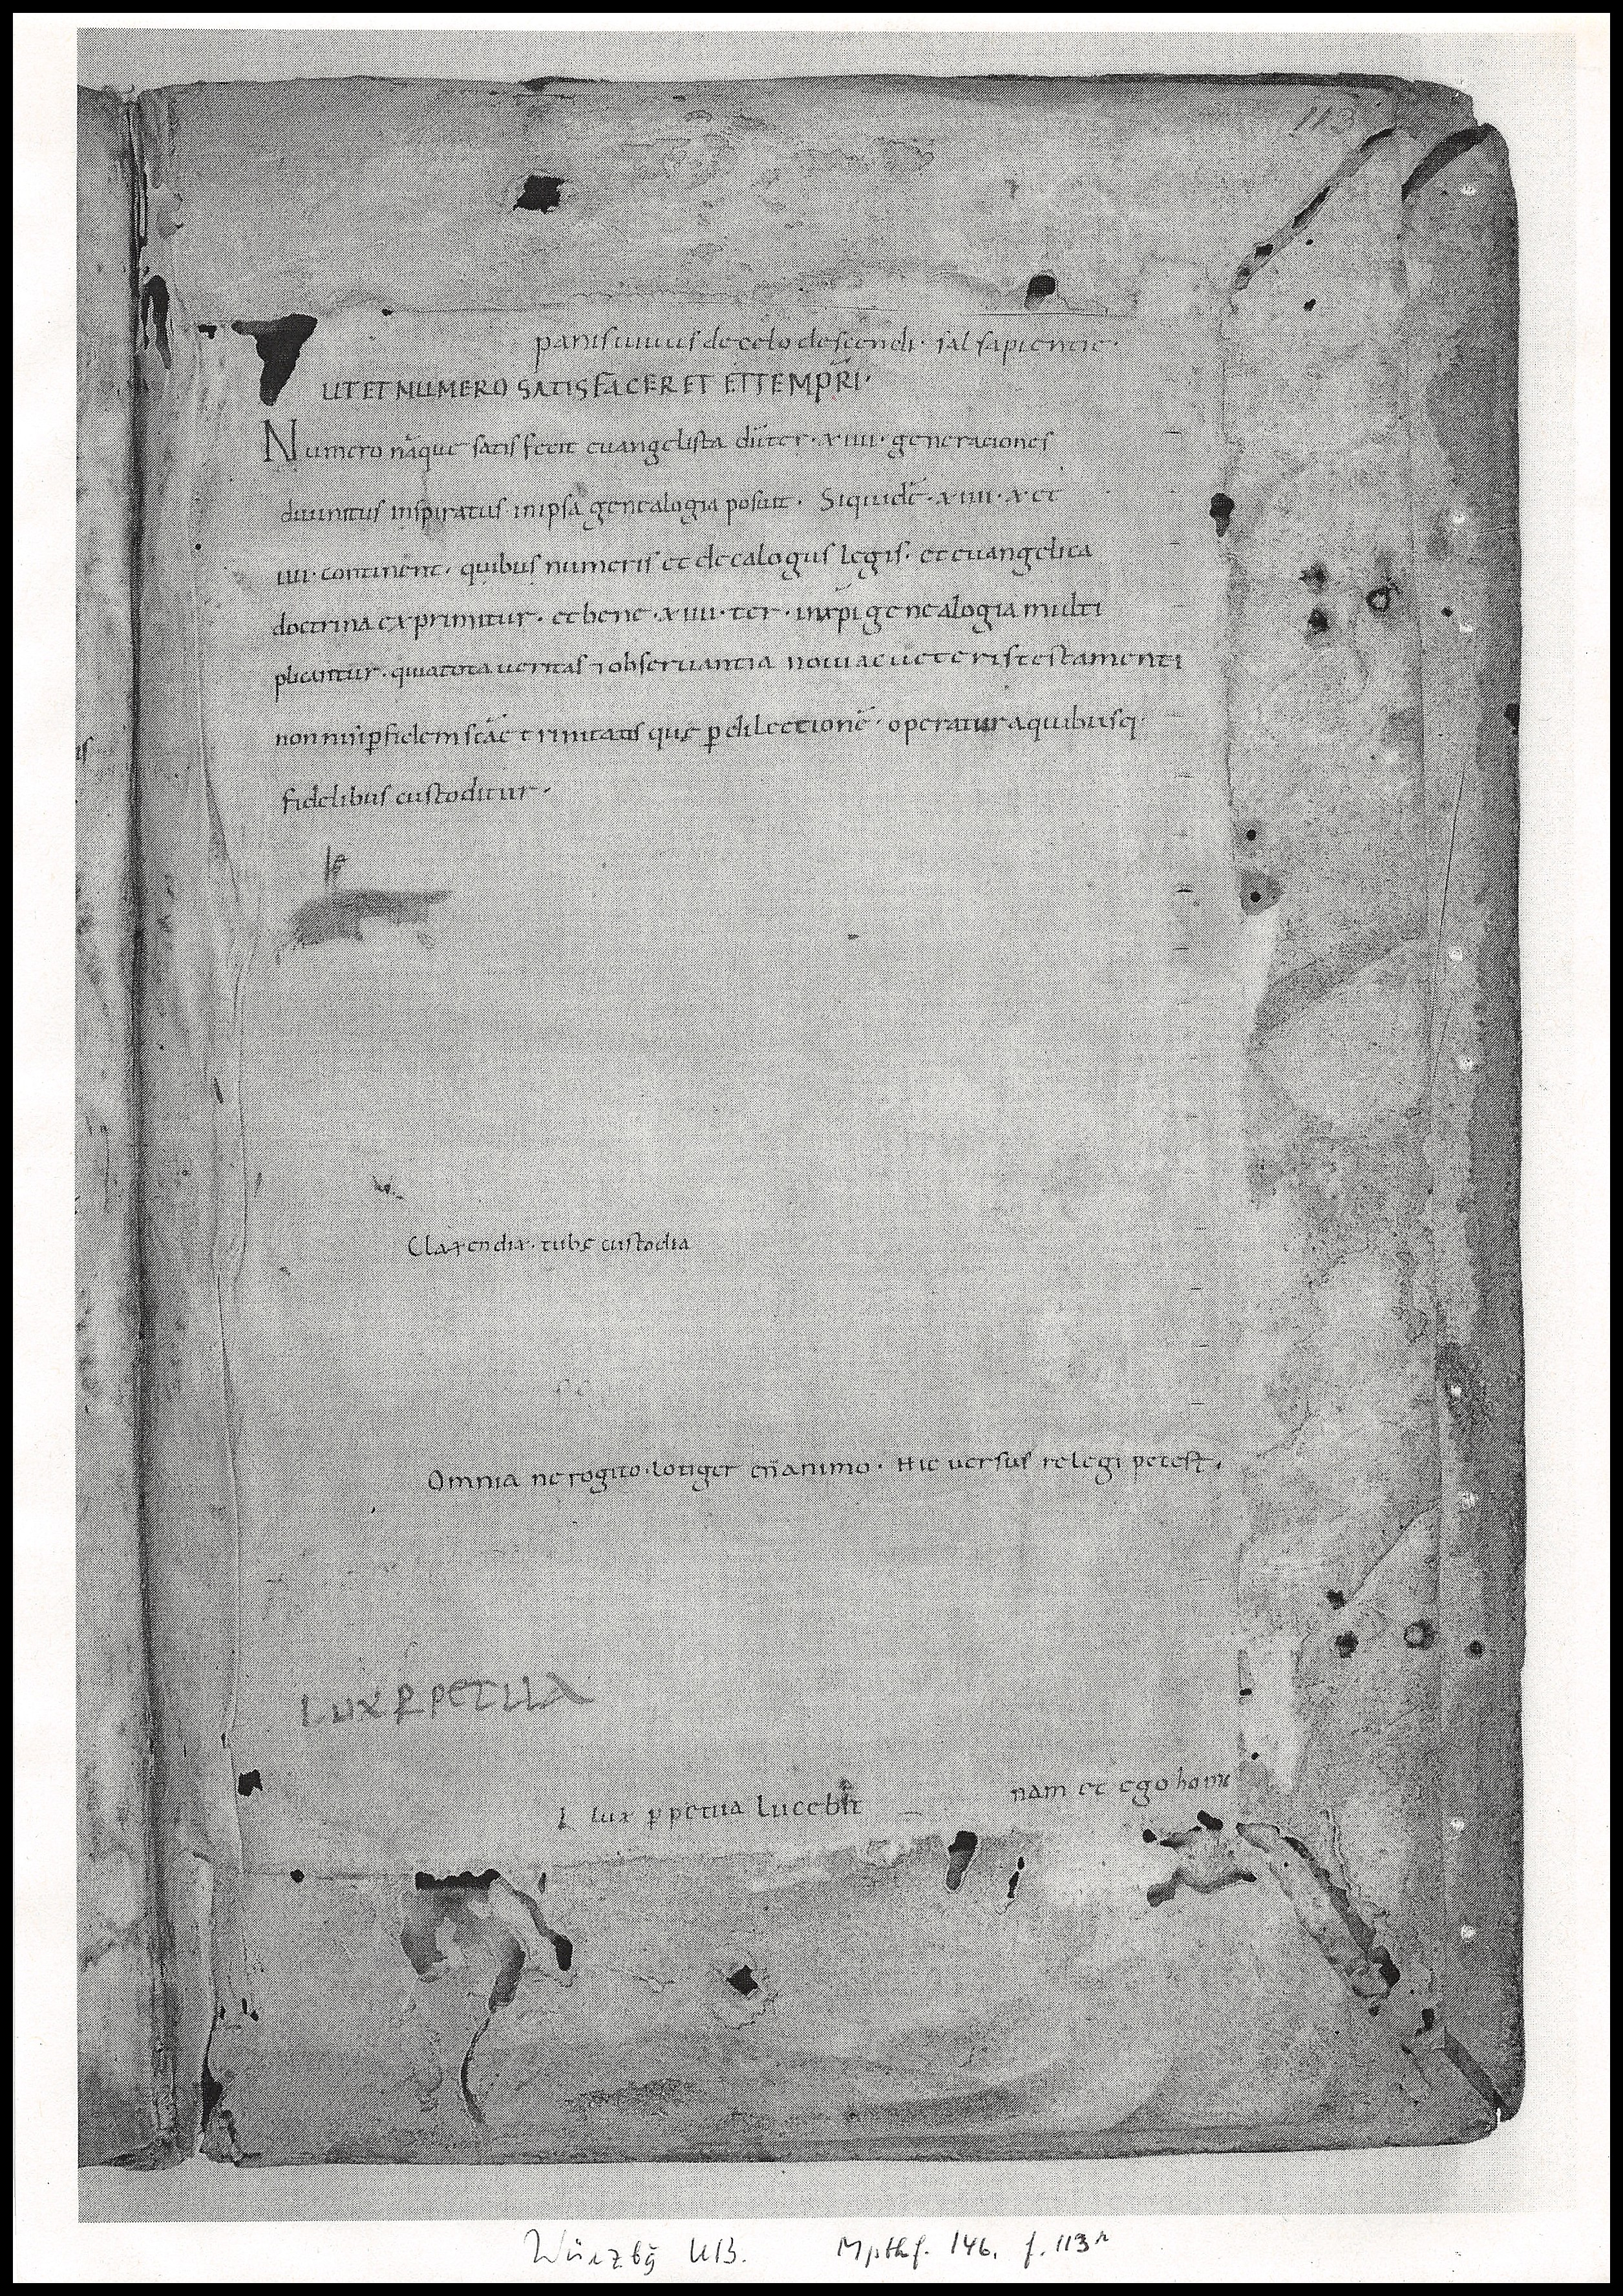 113
panis uiuus de celo descendi· sal sapientie·
UT ET NUMERO SATISFACERET ET TEMPRI·
Numero nāque satisfecit euangelista dū ter·xiiii· generationes
diuinitus inspiratus in ipsa genealogia posuit· Siquidē·xiiii·x et
iiii·continent· quibus numeris et decalogus legis· et euangelica
doctrina exprimitur· et bene·xiiii·ter· in xp̄i genealogia multi
plicantur· quia tota ueritas ⁊ obseruantia noui ac ueteris testamenti
non nisi ꝑ fidem scāe trinitatis quę ꝑ dilectionē· operatur a quibusq·
fidelibus custoditur·
Omnia ne rogito·lotiger en̄ animo· Hic uersus relegi potest·
lux ꝑpetua
l lux ꝑpetua lucebit
nam et ego homo
Würzbg UB. Mpthf. 146, f. 113r